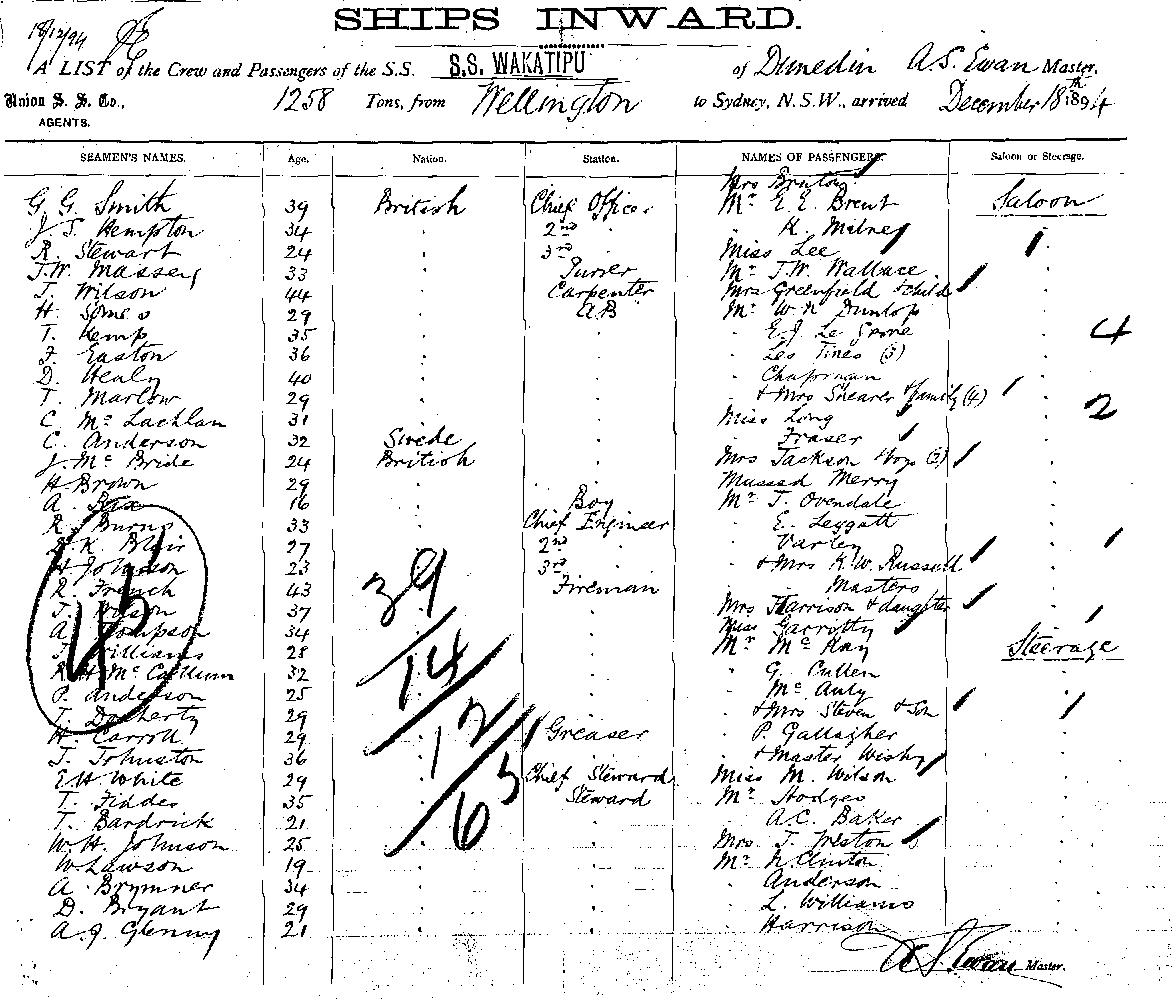 18/12/94
SHIPS INWARD.
A LIST of the Crew and Passengers of the S.S. S.S. WAKATIPU of Dunedin A.S. Ewan Master.
Union S. S. Co., 1258 Tons, from Wellington to Sydney, N.S.W., arrived December 18th 1894
AGENTS.
SEAMEN'S NAMES. Age. Nation. Station. NAMES OF PASSENGERS. Saloon or Steerage.
Mrs Bruton
G. G. Smith 39 British Chief Officer Mr E. E. Brent Saloon
J. S. Hempton 34 2nd K. Milne
R. Stewart 24 3rd Miss Lee 1
T.W. Massey 33 Purser Mr J.W. Wallace
J. Wilson 44 Carpenter Mrs Greenfield & child
H. Somes 29 AB Mr W.N. Dunlop
T. Kemp 35 E.J. Le 4
F. Easton 36 Les Tines (3)
D. Healy 40 Chapman
T. Marlow 29 & Mrs Shearer & family (4)
C. McLachlan 31 Miss Long 2
C. Anderson 32 Swede Fraser
J. McBride 24 British Mrs Jackson & boys (3)
H. Brown 29 Mussad Merry
A. 16 Boy Mr T. Ovendale
R. Burns 33 Chief Engineer E. Leggatt
K. Blair 27 2nd Varley
H Johnson 23 3rd & Mrs K.W. Russell
R. French 43 Fireman Masters
T. Wilson 37 Mrs Harrison & daughter
A. Thompson 34 Miss Garrotty
Williams 28 Mr McKay Steerage
R H McCallum 32 G. Cullen
P. Anderson 25 McAuly
T. Docherty 29 & Mrs Steven & Son
H. Carroll 29 Greaser P. Gallagher
T. Johnston 36 & Master Wishy
E H White 29 Chief Steward Miss M. Wilson
T. Findes 35 Steward Mr Hodges
T. Bardrick 21 A.C. Baker
W.H. Johnson 25 Mrs J. Preston
W. Lawson 19 Mr N. Clinton
A. Brymner 34 Anderson
D. Bryant 29 L. Williams
A.J. Glenny 21 Harrison
39
14
12
65
A S Ewan Master.